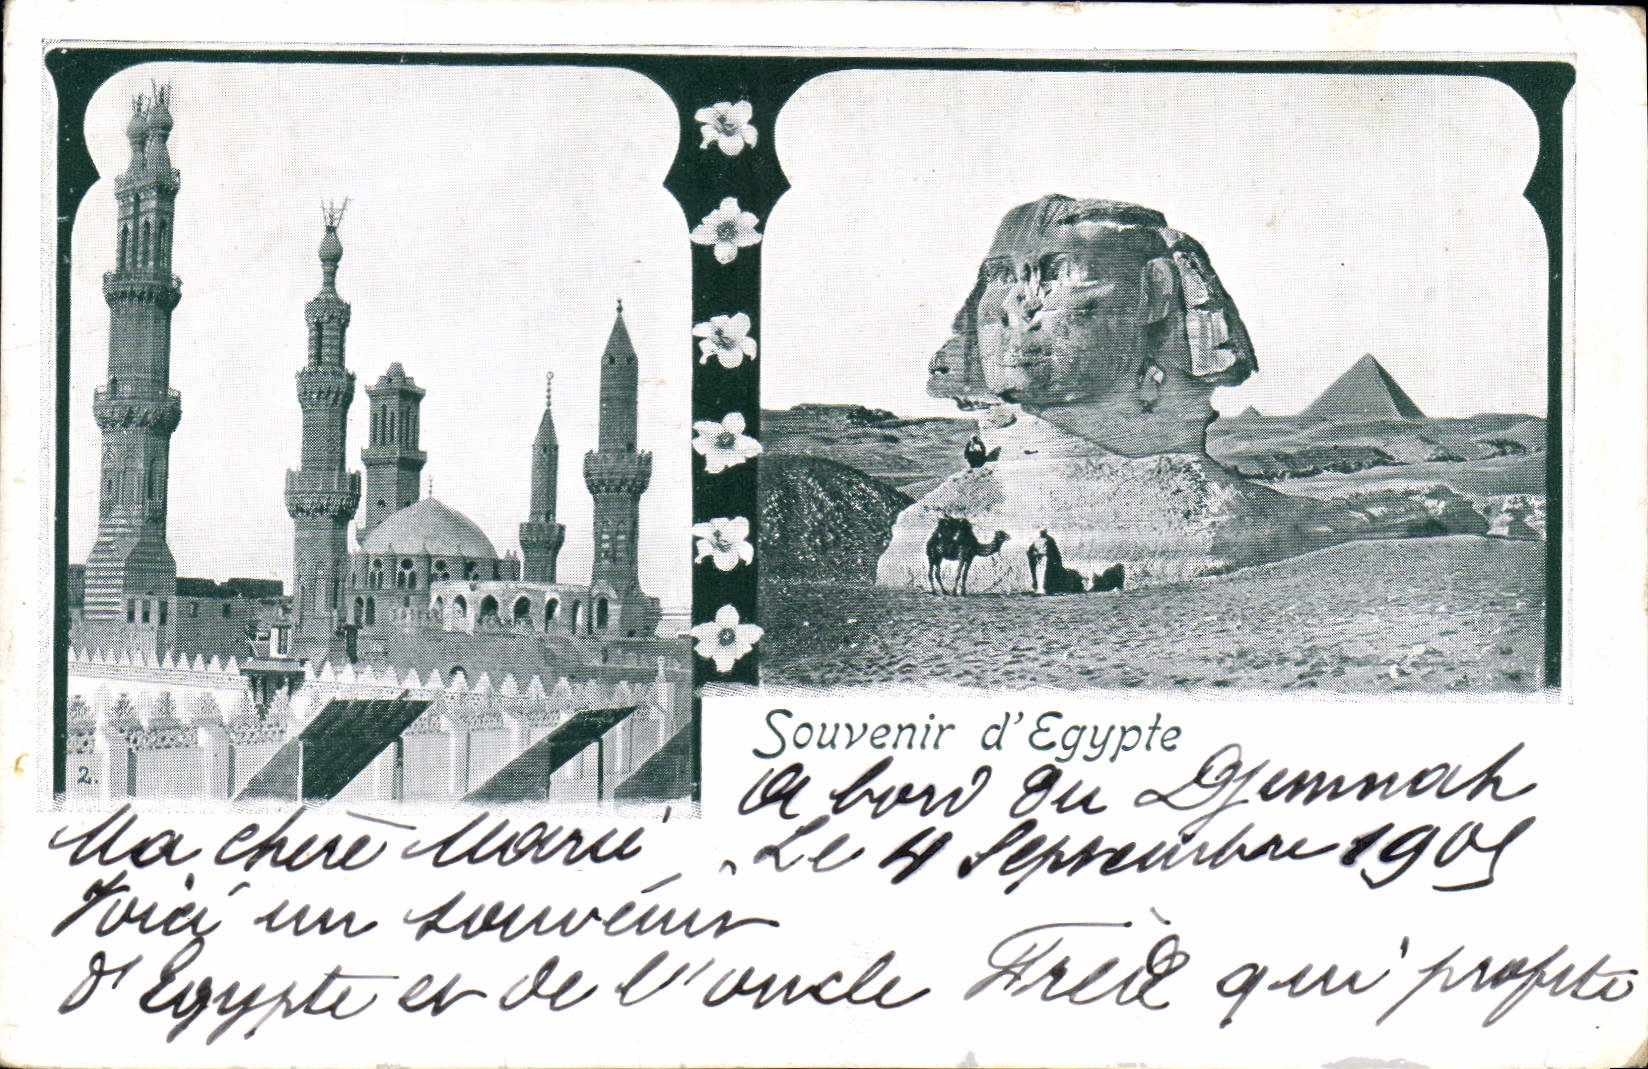 2.
Souvenir d'Egypte
A bord du Djemnah
Le 4 Septembre 1905
Ma chere Marie
Voici un souvenir
d'Egypte et de l'oncle qui profite